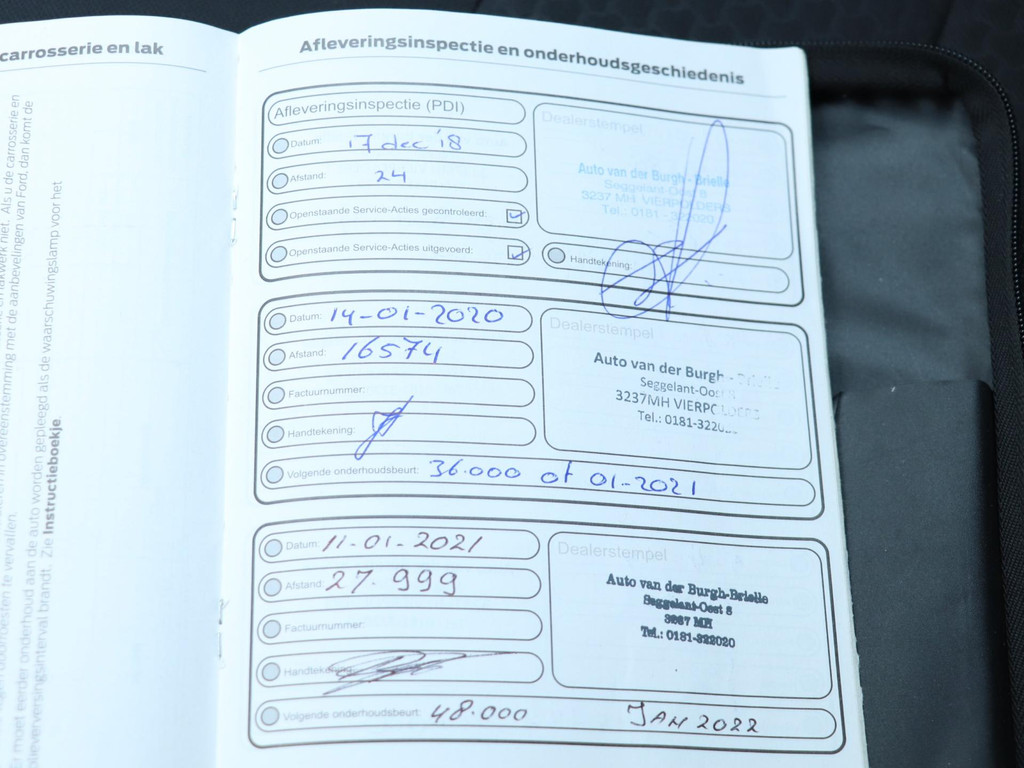 carrosserie en lak
lakwerk niet. Als u de carrosserie en
in overeenstemming met de aanbevelingen van Ford, dan komt de
te vervallen.
Er moet eerder onderhoud aan de auto worden gepleegd als de waarschuwingslamp voor het
olieverversingsinterval brandt. Zie Instructieboekje.
Afleveringsinspectie en onderhoudsgeschiedenis
Afleveringsinspectie (PDI)
Datum: 17 dec '18
Afstand: 24
Openstaande Service-Acties gecontroleerd:
Openstaande Service-Acties uitgevoerd:
Dealerstempel
Auto van der Burgh - Brielle
Seggelant-Oost 8
3237 MH VIERPOLDERS
Tel.: 0181 - 322020
Handtekening:
Datum: 14-01-2020
Afstand: 16574
Factuurnummer:
Handtekening:
Volgende onderhoudsbeurt: 36.000 of 01-2021
Dealerstempel
Auto van der Burgh - Brielle
Seggelant-Oost
3237MH VIERPOLDERS
Tel.: 0181-322
Datum: 11-01-2021
Afstand: 27.999
Factuurnummer:
Handtekening:
Volgende onderhoudsbeurt: 48.000 JAN 2022
Dealerstempel
Auto van der Burgh-Brielle
Seggelant-Oost 8
3237 MH
Tel.: 0181-322020